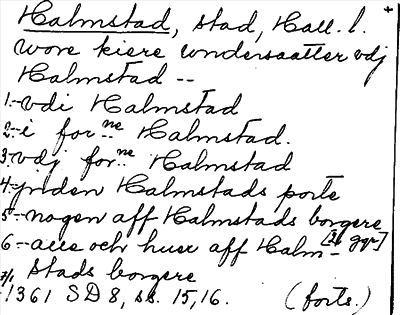 Halmstad, stad, Hall. l. +
wore kiere wndersaatter vdj
Halmstad --
1.- vdi Halmstad
2.- i for ne Halmstad.
3.- vdj for ne Halmstad
4.- jnden Halmstads porte
5.- nogen aff Halmstads borgere
[2 ggr]
6.- alle och huer aff Halm-
stads borgere
7/1 1361 SD 8, s. 15, 16. (forts.)